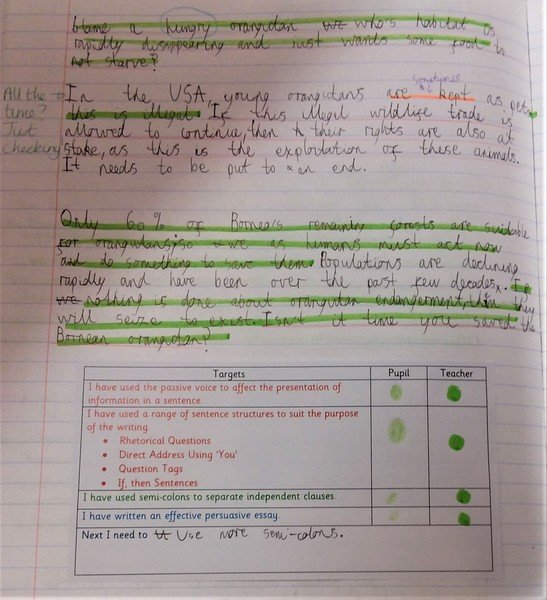 blame a hungry orangutan we who's habitat is
rapidly disappearing and just wants some food to
not starve?
All the time?
Just checking
sometimes
In the USA, young orangutans are kept as pets
this is illegal. If this illegal wildlife trade is
allowed to continue, then their rights are also at
stake, as this is the exploitation of these animals.
It needs to be put to an end.
Only 60% of Borneo's remaining forests are suidable
for orangutans; so we as humans must act now
and do something to save them. Populations are declining
rapidly and have been over the past few decades. If
we nothing is done about orangutan endangerment, then they
will seize to exist. Isn't it time you saved the
Bornean orangutan?
Targets Pupil Teacher
I have used the passive voice to affect the presentation of
information in a sentence.
I have used a range of sentence structures to suit the purpose
of the writing.
• Rhetorical Questions
• Direct Address Using 'You'
• Question Tags
• If, then Sentences
I have used semi-colons to separate independent clauses.
I have written an effective persuasive essay.
Next I need to Use more semi-colons.